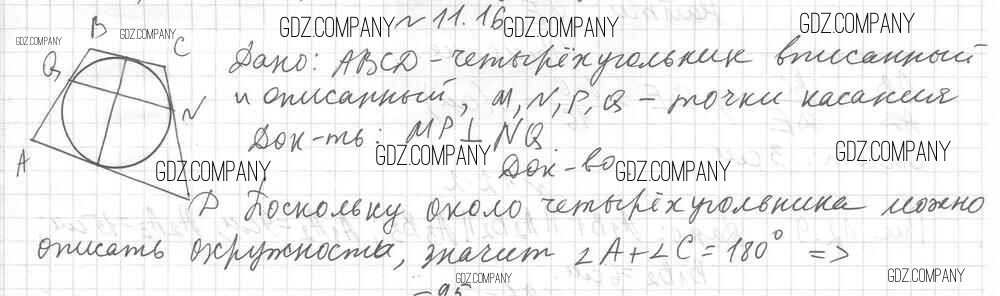 № 11.16
Дано: ABCD - четырёхугольник вписанный
и описанный, M, N, P, Q - точки касания
Док-ть: MP⊥NQ
Док-во
Поскольку около четырёхугольника можно
описать окружность, значит ∠A+∠C=180° =>
B
C
Q
N
A
D
GDZ.COMPANY
GDZ.COMPANY
GDZ.COMPANY
GDZ.COMPANY
GDZ.COMPANY
GDZ.COMPANY
GDZ.COMPANY
GDZ.COMPANY
GDZ.COMPANY
GDZ.COMPANY
GDZ.COMPANY